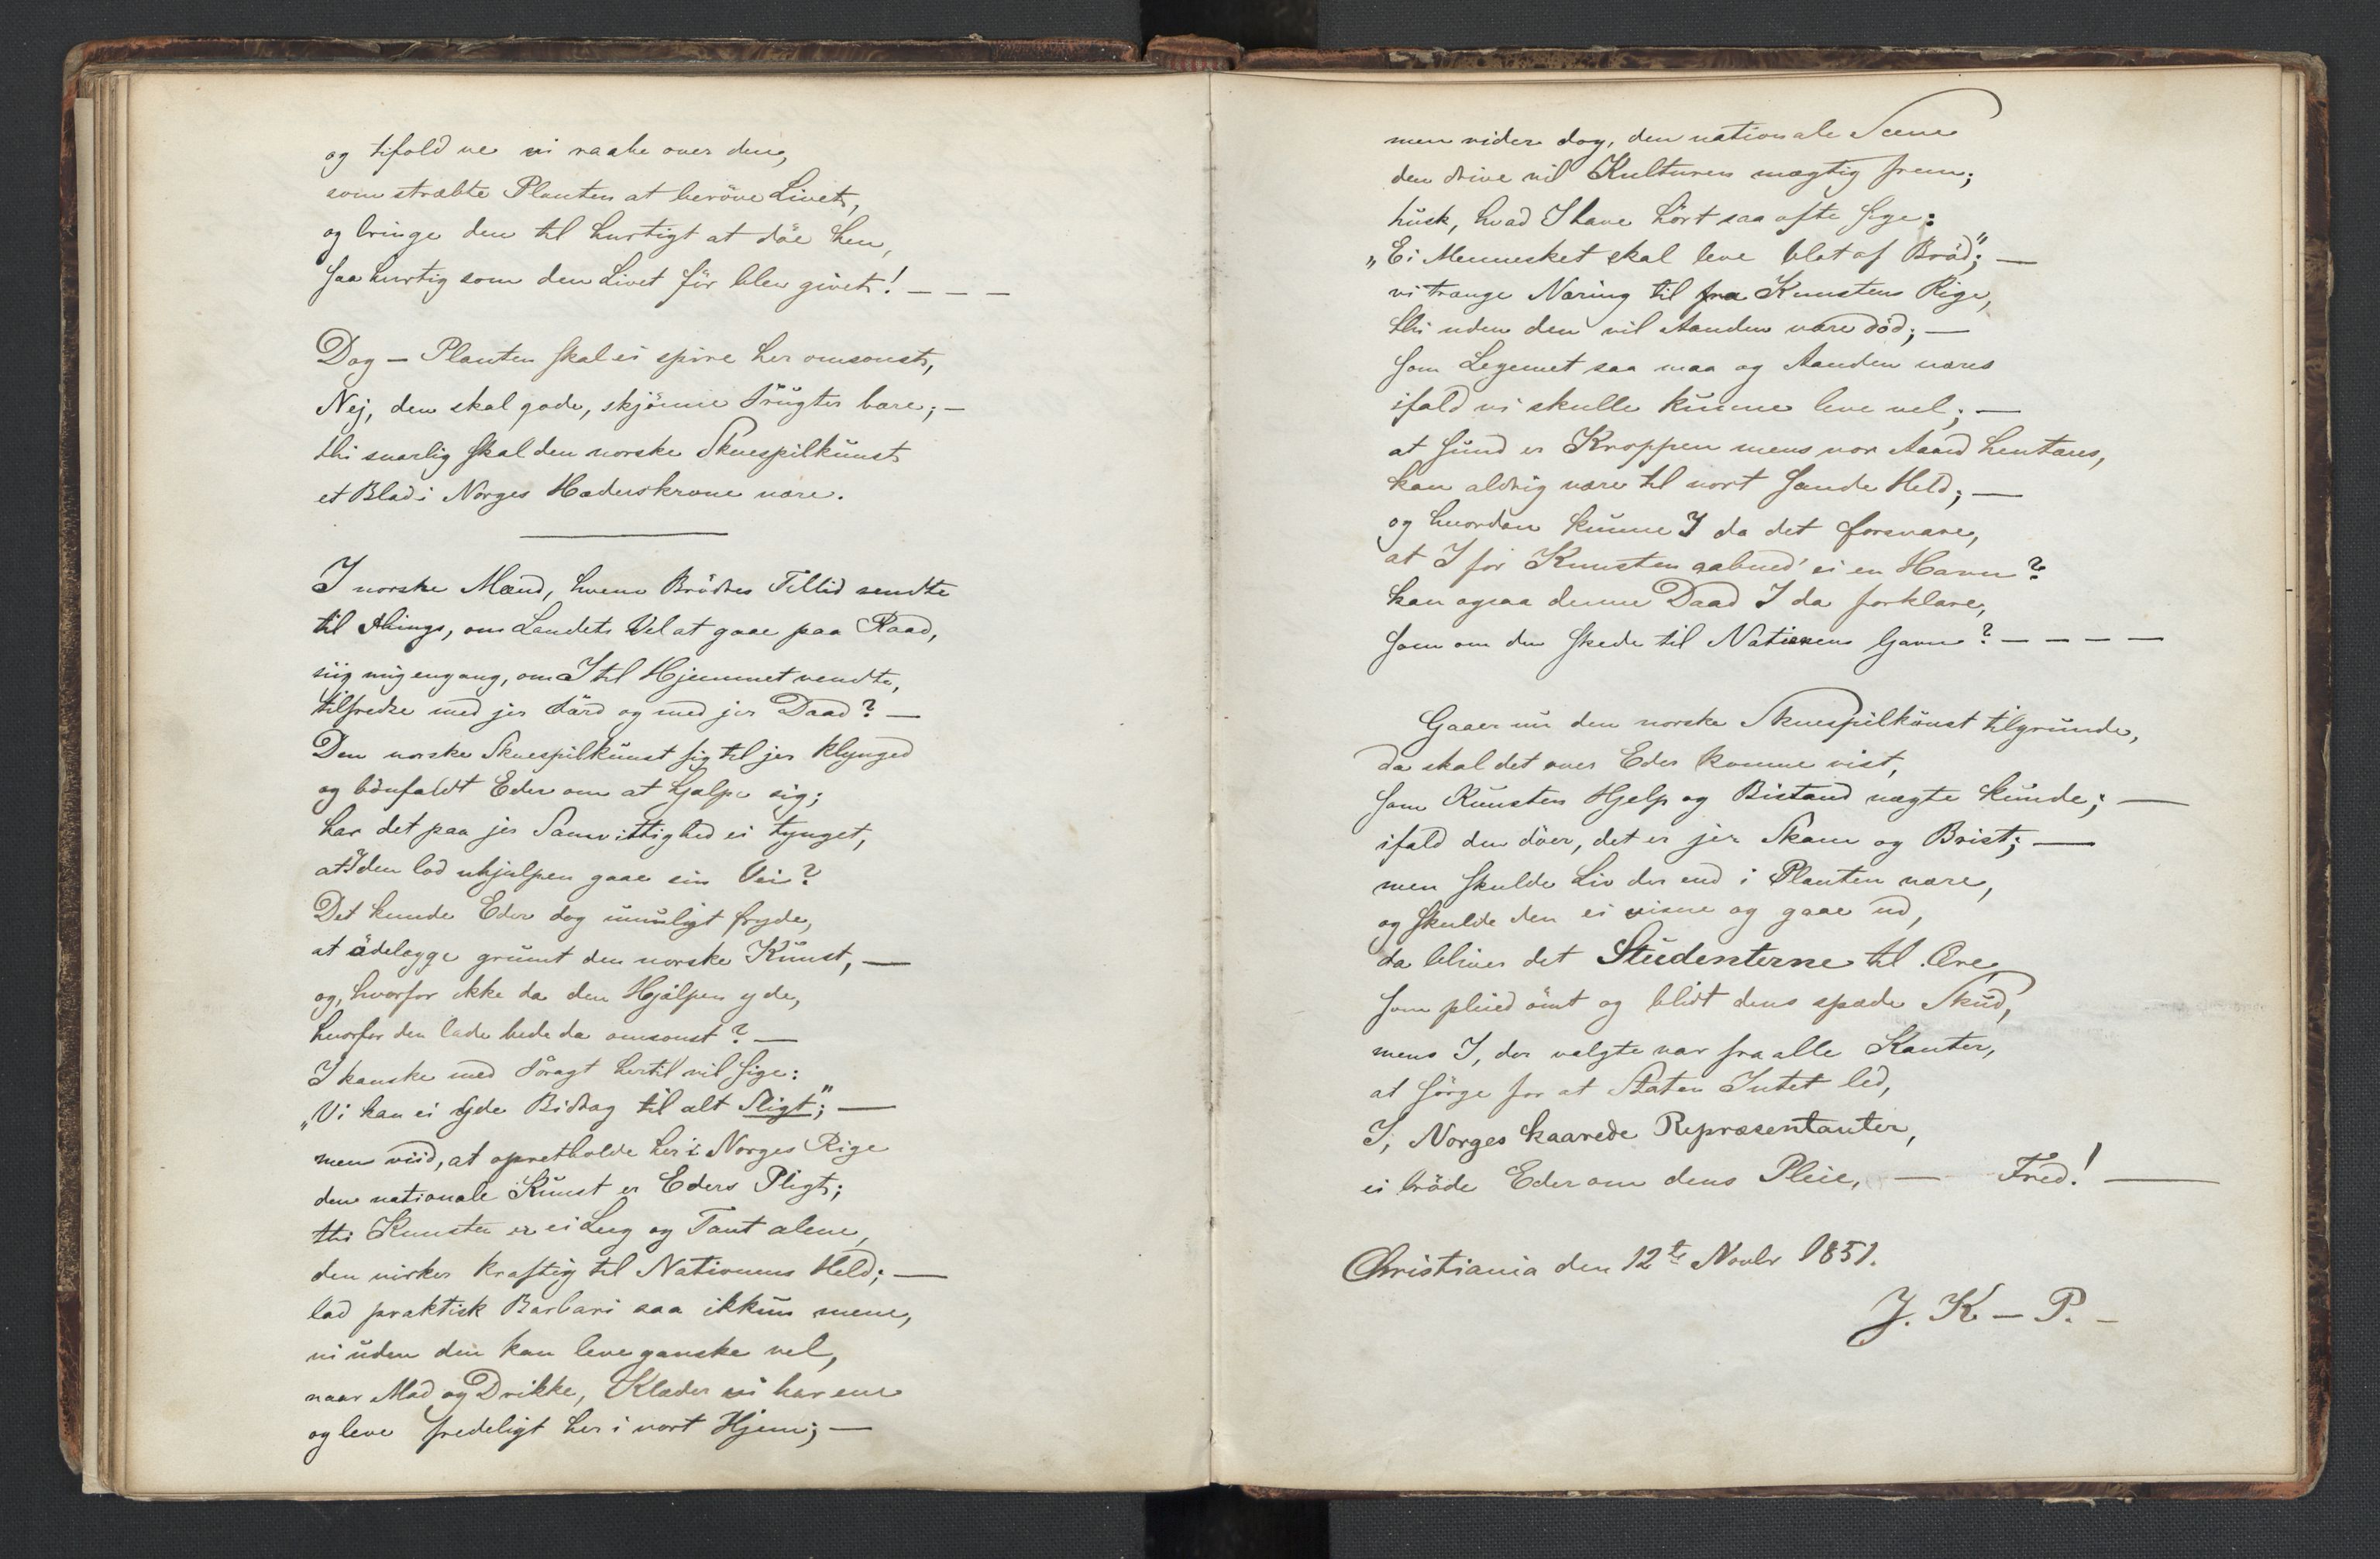 og tifold ve vi raabe over den,
som stræbte Planten at beröve Livet,
og bringe den til hurtigt at döe hen,
saa hurtig som den Livet för blev givet! – – –
Dog – Planten skal ei spire her omsonst,
Nej, den skal gode, skjönne Frügter bære; –
thi snarlig skal den norske Skuespilkünst
et Blad i Norges Hæderskrone være.
I norske Mænd, hvem Brödres Tillid sendte
til Things, om Landets Vel at gaae paa Raad,
siig mig engang, om I til Hjemmet vendte,
tilfredse med jer Färd og med jer Daad? –
Den norske Skuespilkünst sig til jer klynged
og bönfaldt Eder om at hjælpe sig;
har det paa jer Samvittighed ei tynget,
at I den lod uhjulpen gaae sin Vei?
Det kunde Eder dog ümüligt fryde,
at ödelægge grümt den norske Künst, –
og, hvorfor ikke da den Hjälpen yde,
hvorfor den lade bede da omsonst? –
I kanske med Foragt hertil vil sige:
„Vi kan ei yde Bidrag til alt Sligt"; –
men viid, at opretholde her i Norges Rige
den nationale Künst er Eders Pligt;
thi Kunsten er ei Leeg og Tant alene,
den virker kraftig til Nationens Held; –
lad praktisk Barbari saa ikkün mene,
vi üden den kan leve ganske vel,
naar Mad og Drikke, Klæder vi har ene
og leve fredeligt her i vort Hjem; –
men vider dog, den nationale Scene
den drive vil Kulturen mægtig frem;
hüsk, hvad I have hört saa ofte sige:
„Ei Mennesket skal leve blot af Bröd"; –
vi trænge Næring til fra Kunstens Rige,
thi uden den vil Aanden være död; –
Som Legemet saa maa og Aanden næres
ifald vi skulle künne leve vel; –
at sünd er Kroppen mens vor Aand hentæres,
kan aldrig være til vort sande Held; –
og hvordan künne I da det forsvare,
at I for Kunsten aabned' ei en Havn?
kan ogsaa denne Daad I da forklare,
som om den skede til Nationens Gavn? – – – –
Gaaer nü den norske Skuespilkünst tilgründe,
da skal det over Eder komme vist,
som Künsten Hjelp og Bistand nægte künde; –
ifald den döer, det er jer Skam og Brist; –
men skulde Liv der end i Planten være,
og skulde den ei visne og gaae üd,
da bliver det Stüdenterne til Ære,
som pleied ömt og blidt dens spæde Sküd,
mens I, der valgte var fra alle Kanter,
at sörge for at Staten Intet led,
I, Norges kaarede Repræsentanter,
ei bröde Eder om dens Pleie, – Fred! –
Christiania den 12te Novbr 1851.
J. K – P. –